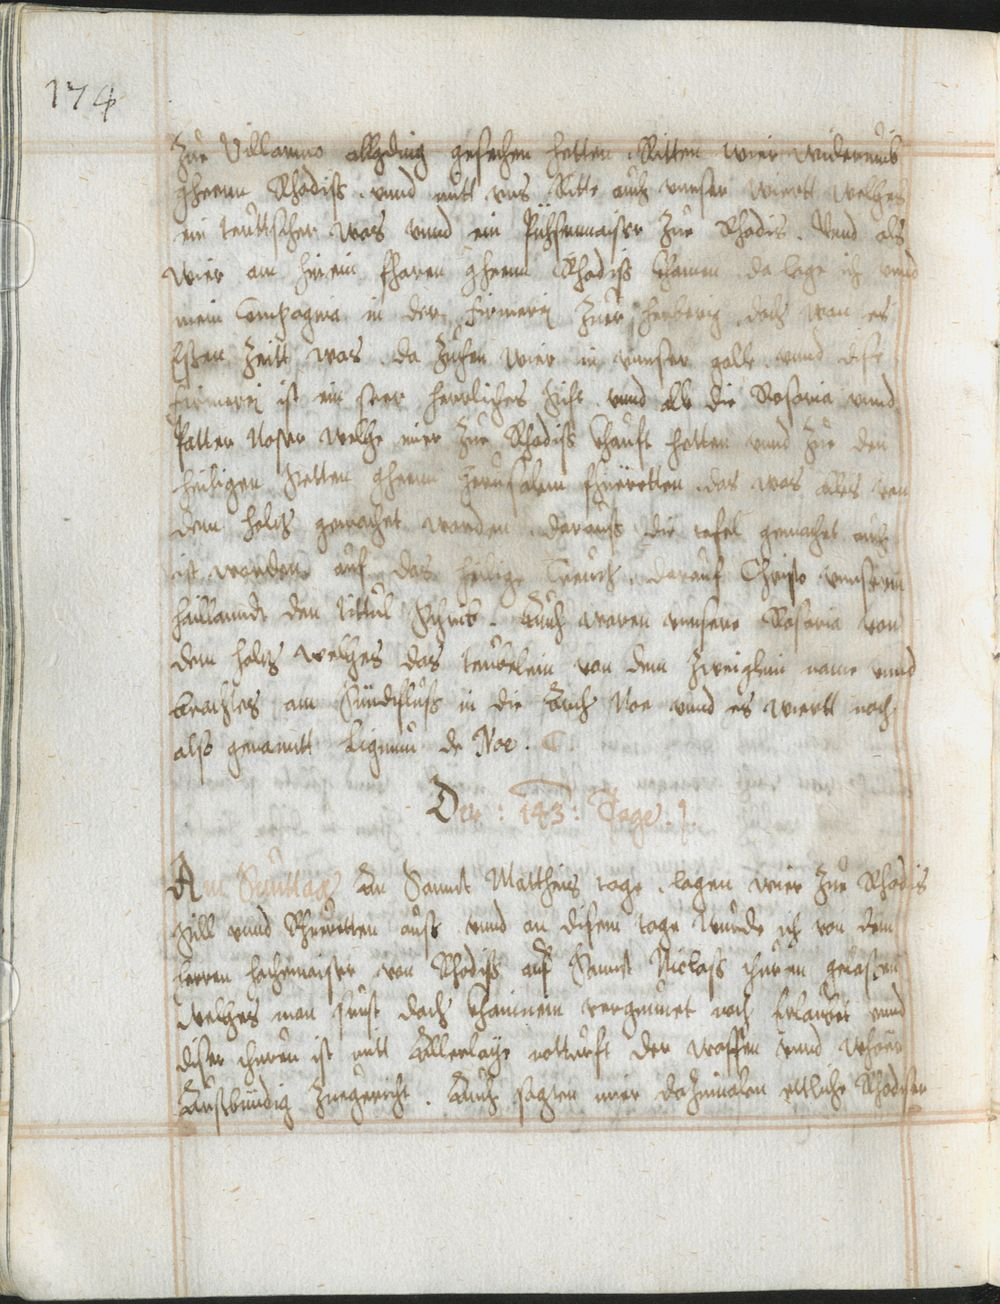 174
Zue Villanno allding gesechen hetten. Ritten wier widerumb
gheenn Rhodiss. vnnd mitt vns Ritte auch vnnser wiertt welches
ein teuttscher was vnnd ein Pichsenmaister Zue Rhodis. Vnnd als
wier am hinein fharen gheenn Rhodiss khamen da lage ich vnnd
mein Compagnia in der Firmerej Zuer herberig doch wan es
Essen Zeitt was. da Zuhen wier in vnnser galle. vnnd dise
Firmerej ist ein seer herrliches Hist vnnd alle die Rosaria vnnd
Patter Noster welche mier Zue Rhodiss khaufft hetten vnnd Zue den
heiligen Stetten gheenn Jerusalem fhüeretten. das was alles von
dem holtz gemachet worden. darauss die tafel gemachet auch
ist worden auf das heilige Creutz. darauf Christo vnnserm
haillanndt den tittul Schrib. Auch waren vnnsere Rosaria von
dem holtz welches das teubelein von dem Zweiglein name vnnd
brachtes am Sündtfluss in die Arch Noe vnnd es wiertt noch
also genanntt Lignum de Noe.
Der : 143 : Tage.
Am Suntag An Sannct Mattheus tage. lagen wier Zue Rhodis
still vnnd Rhueetten auss vnnd an disem tage wurde ich von dem
Herren hochmaister von Rhodiss auf Sannct Niclass thuren gelassen
welches man sunst doch khainnem vergunnet noch Erlaubet vnnd
diser thuren ist mitt Allerlaye notturft der waffen vnnd whöer
Aussbündig Zuegericht. Auch sagten mier dazumalen ettliche Rhodiser